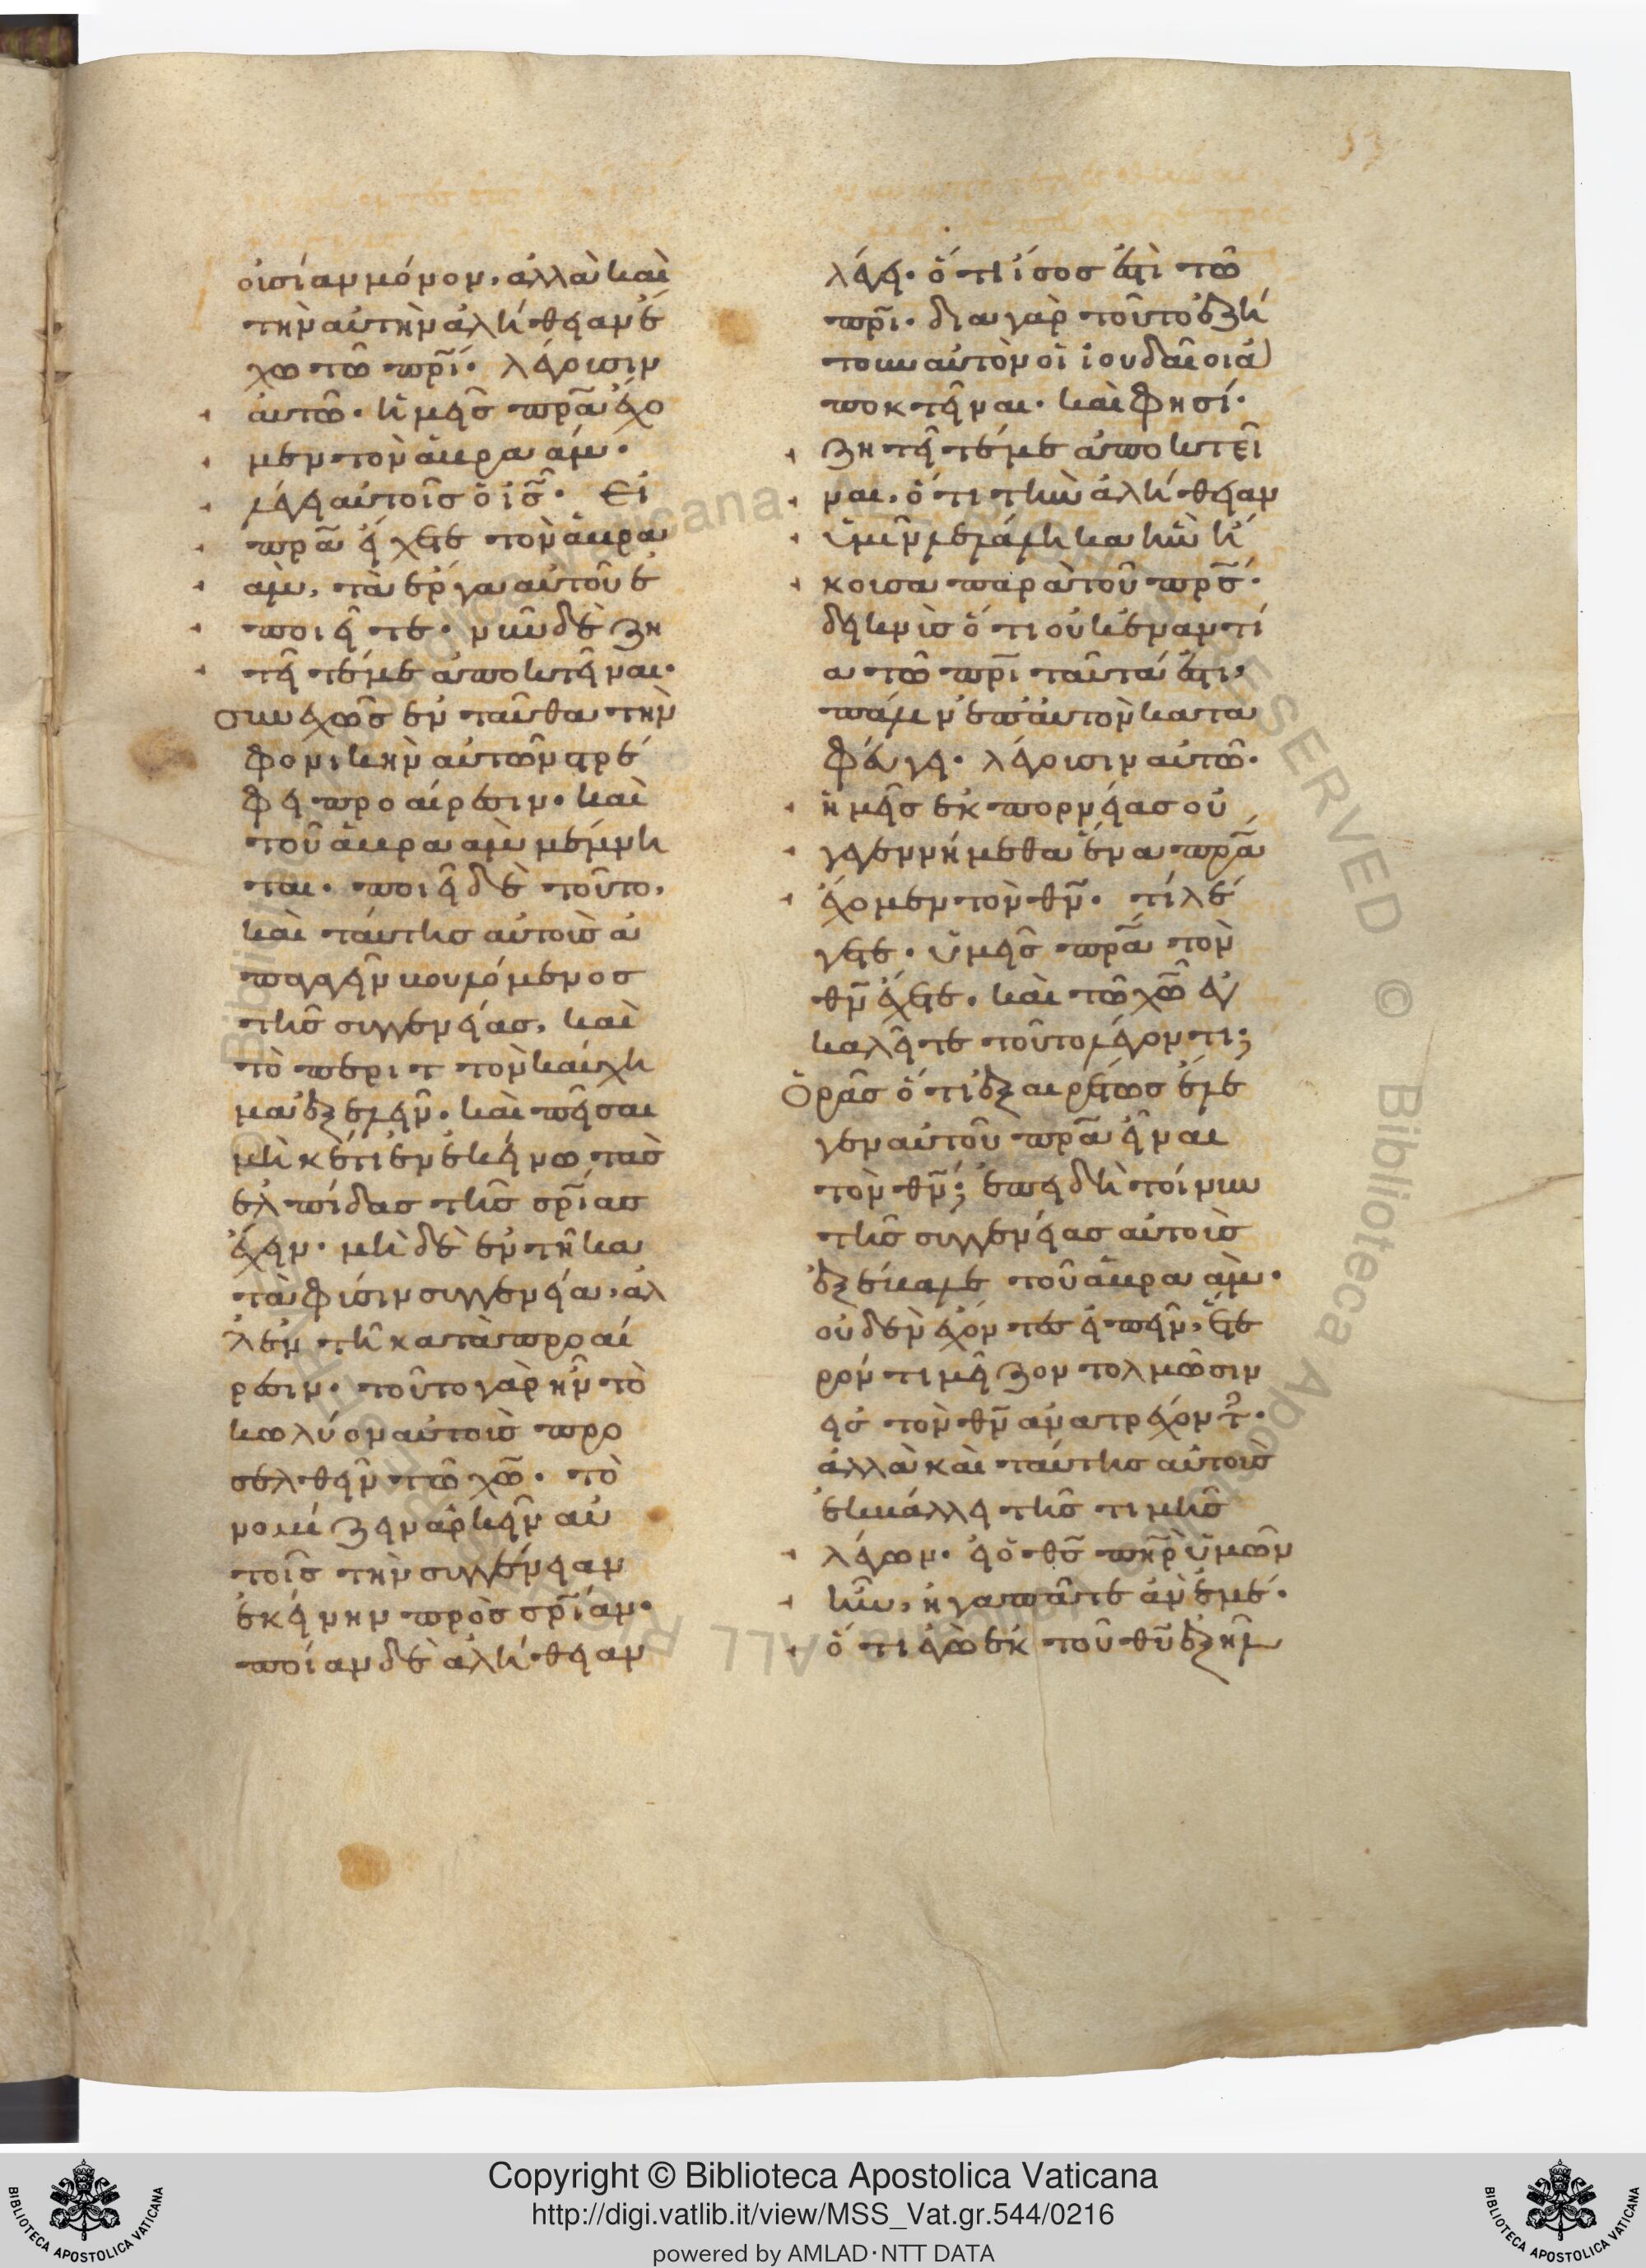 οὐσίαν μόνον, ἀλλὰ καὶ
τὴν αὐτὴν ἀλήθειαν ἔ
χω τῶ πρι. λέγουσιν
αὐτῶ. ἡμεῖς πρα ἔχο
μεν τὸν ἀβρααάμ.
λέγει αὐτοῖς ὁ ις. Εἰ
πρα εἴχετε τὸν ἀβρα
ὰμ, τὰ ἔργα αὐτοῦ ἐ
ποιεῖτε. νῦν δὲ ζη
τεῖτέ με ἀποκτεῖναι.
συνεχῶς ἐνταῦθα τὴν
φονικὴν αὐτῶν στρέ
φει προαίρεσιν. καὶ
τοῦ ἀβρααὰμ μέμνη
ται. ποιεῖ δὲ τοῦτο,
καὶ ταύτης αὐτοὺς ἀ
παγαγεῖν βουλόμενος
τῆς συγγενείας, καὶ
τὸ περιττὸν καύχη
μα ἐξελεῖν. καὶ πεῖσαι
μὴ κέτι ἐν ἐκείνω τὰς
ἐλπίδας τῆς σριας
ἔχειν. μὴ δὲ ἐν τῆ κα
τὰ φύσιν συγγενεία, ἀλ
λ' ἐν τῆ κατὰ προαί
ρεσιν. τοῦτο γὰρ ἦν τὸ
κωλύον αὐτοὺς προ
σελθεῖν τῶ χω. τὸ
νομίζειν ἀρκεῖν αὐ
τοῖς τὴν συγγένειαν
ἐκείνην πρὸς σριαν.
ποίαν δὲ ἀλήθειαν
λέγει. ὅτι ἴσος ἐστὶ τῶ
πρι. διὰ γὰρ τοῦτο ἐζή
τουν αὐτὸν οἱ ἰουδαῖοι ἀ
ποκτεῖναι. καὶ φησί.
ζητεῖτέ με ἀποκτεῖ
ναι, ὅτι τὴν ἀλήθειαν
ὑμῖν λελάληκα ἣν ἤ
κουσα παρὰ τοῦ πρς.
δεικνὺς ὅτι οὐκ ἐναντί
α τῶ πρι ταῦτά ἐστι,
πάλιν ἐπ' αὐτὸν κατα
φεύγει. λέγουσιν αὐτῶ.
ἡμεῖς ἐκ πορνείας οὐ
γεγεννήμεθα ἕνα πρα
ἔχομεν τὸν θν. τί λέ
γετε. ὑμεῖς πρα τὸν
θν ἔχετε. καὶ τῶ χω ἐγ
καλεῖτε τοῦτο λέγοντι;
Ὁρᾶς ὅτι ἐξαιρέτως ἔλε
γεν αὐτοῦ πρα εἶναι
τὸν θν; ἐπειδὴ τοίνυν
τῆς συγγενείας αὐτοὺς
ἐξέβαλε τοῦ ἀβρααὰμ.
οὐδὲν ἔχοντες εἰπεῖν, ἕτε
ρόν τι μεῖζον τολμῶσιν
εἰς τὸν θν ἀνατρέχοντ.
ἀλλὰ καὶ ταύτης αὐτοὺς
ἐκβάλλει τῆς τιμῆς
λέγων. εἰ ὁ θς πηρ ὑμῶν
ἦν, ἠγαπᾶτε ἂν ἐμέ.
ὅτι ἐγὼ ἐκ τοῦ θυ ἐξῆλ